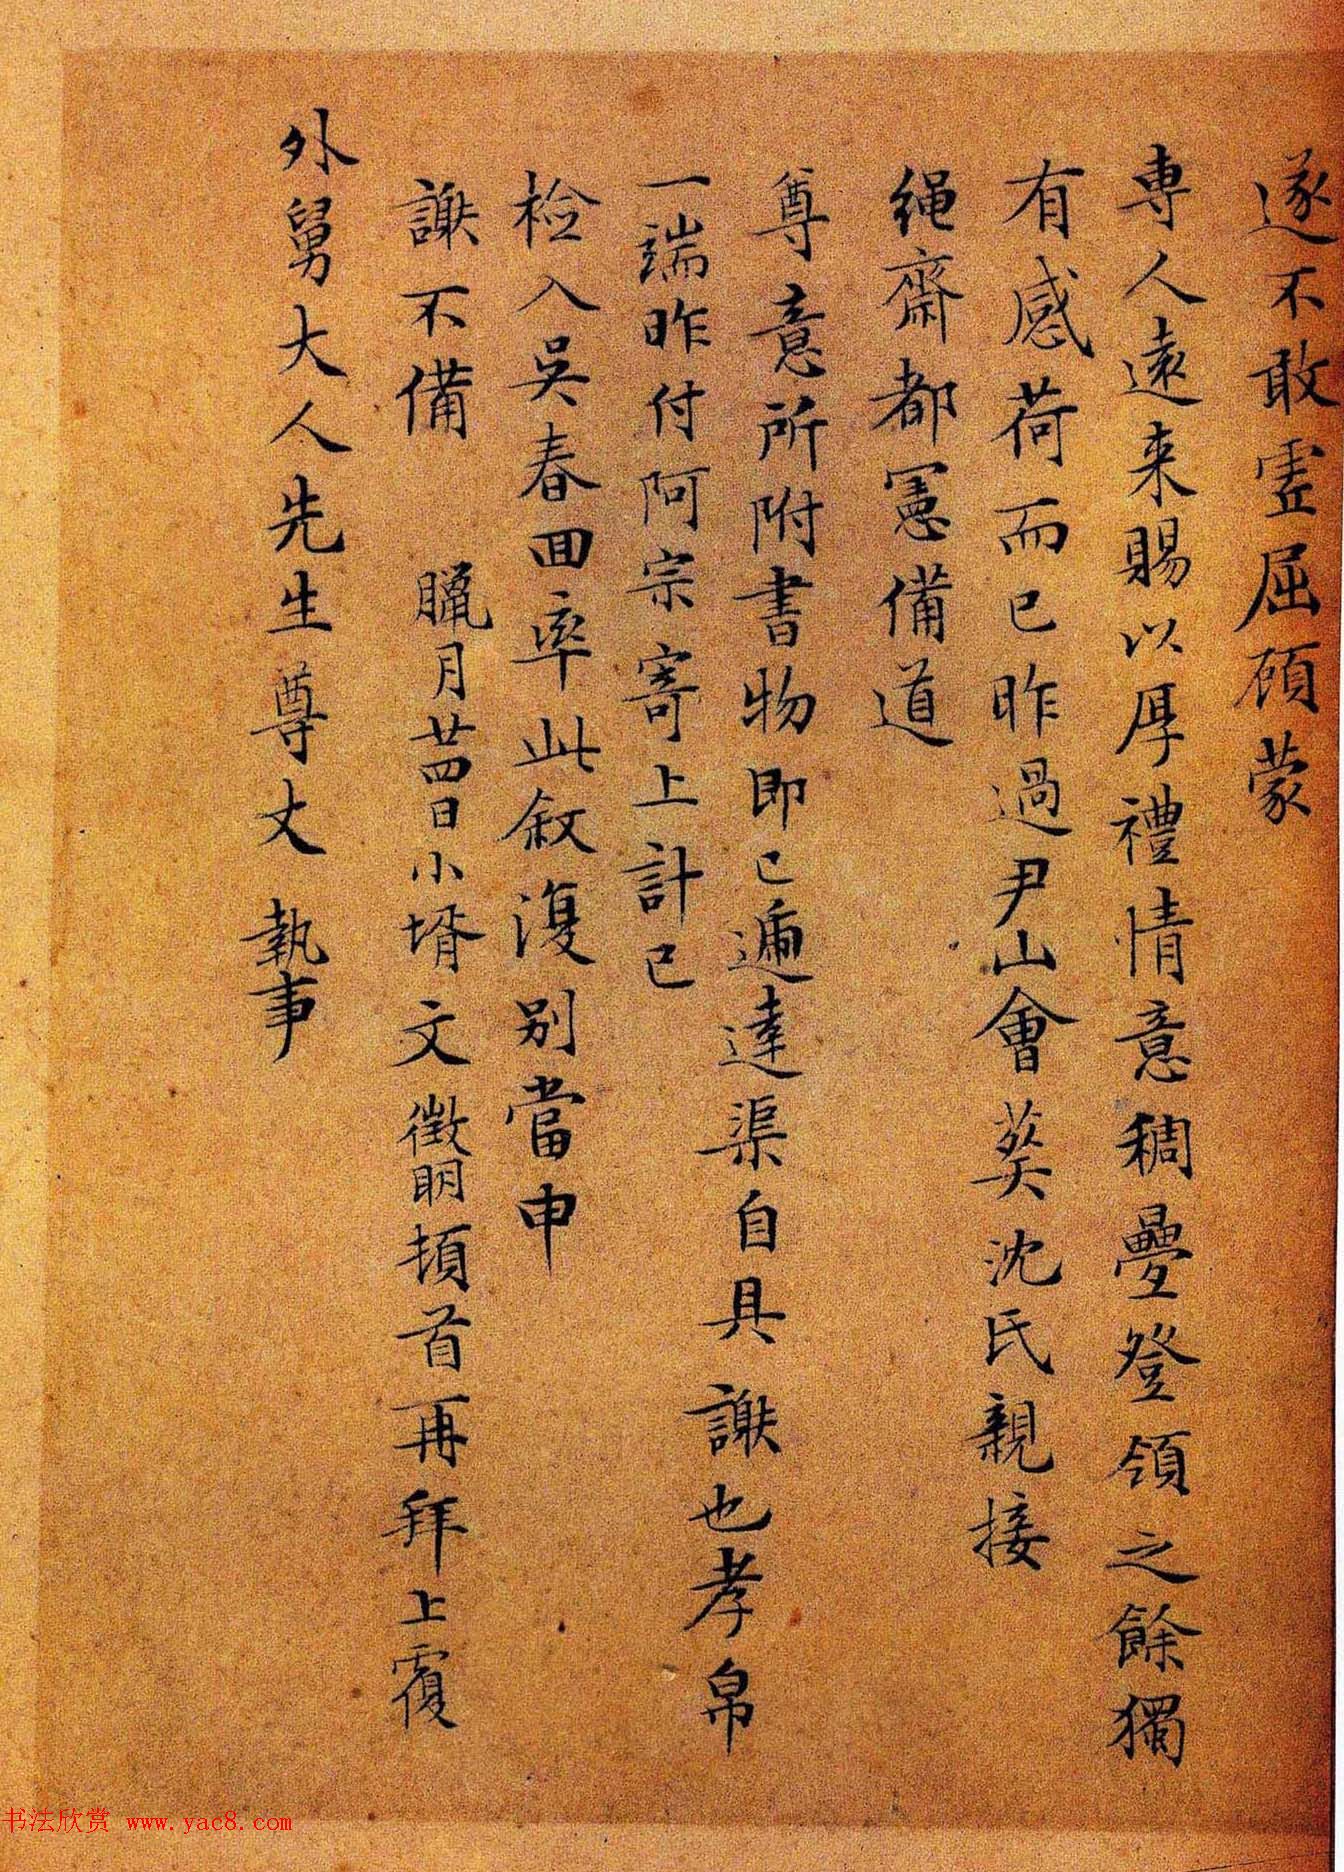 遂不敢虚屈碩蒙
專人遠来賜以厚禮情意稠疊登領之餘獨
有感荷而已昨過尹山會葬沈氏親接
繩齋都憲備道
尊意所附書物即已遞達渠自具謝也孝帛
一端昨付阿宗寄上計已
檢入吳春回率此叙復別當申
謝不備 臘月廿四日小壻文徵明頓首再拜上覆
外舅大人先生尊丈執事
书法欣赏 www.yac8.com